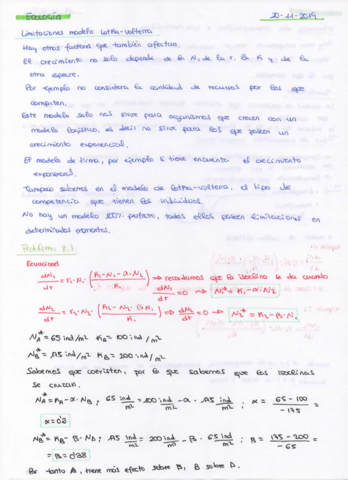 Ecología 20-11-2019
Limitaciones modelo Lotka-Volterra
Hay otros factores que también afectan.
El crecimiento no solo depende de la N, de la r, la K y de la
otra especie.
Por ejemplo no considera la cantidad de recursos por los que
compiten.
Este modelo solo nos sirve para organismos que crecen con un
modelo logístico, es decir no sirve para los que poseen un
crecimiento exponencial.
El modelo de tirma, por ejemplo si tiene encuenta el crecimiento
exponencial.
Tampoco sabemos en el modelo de Lotka-Volterra, el tipo de
competencia que tienen los individuos.
No hay un modelo 100% perfecto, todos ellos poseen limitaciones en
determinados momentos.
Problema 8.1
Ecuaciones
dN₁/dt = r₁·N₁·(K₁-N₁-α·N₂/K₁) ⇒ recordamos que la isoclina se da cuando
dN₁/dt = 0 → N₁* = K₁-α·N₂
dN₂/dt = r₂·N₂·(K₂-N₂-β·N₁/K₂) ⇒ dN₂/dt = 0 → N₂* = K₂-β·N₁
N_A* = 65 ind/m² K_A 100 ind/m²
N_B* = 175 ind/m² K_B = 200 ind/m²
Sabemos que coexisten, por lo que sabemos que las isoclinas
se cruzan.
N_A* = K_A-α·N_B; 65 ind/m² = 100 ind/m² - α · 175 ind/m²; α = 65-100/-175 =
α = 0'2
N_B* = K_B-β·N_A; 175 ind/m² = 200 ind/m² - β · 65 ind/m²; β = 175-200/-65 =
= β = 0'38
Por tanto A, tiene más efecto sobre B, B sobre A.